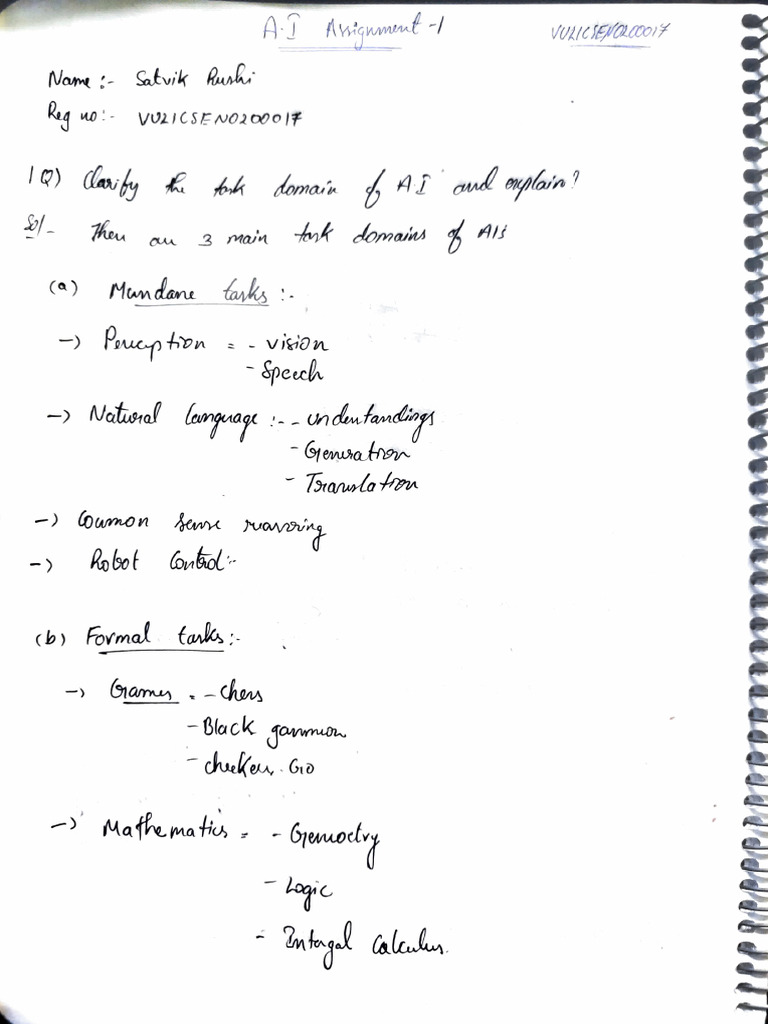 A.I Assignment -1 VU21CSEN0200017
Name :- Satvik Rushi
Reg no :- VU21CSEN0200017
1Q) Clarify the task domain of A.I and explain?
Sol- Then are 3 main task domains of AIs
(a) Mundane tasks :-
-> Perception = - vision
- Speech
-> Natural language :- - understandings
- Generation
- Translation
-> Common sense reasoning
-> Robot Control :-
(b) Formal tasks :-
-> Games = - chess
- Black gammon
- checkers. Go
-> Mathematics = - Gemoetry
- Logic
- Intergal Calculus.